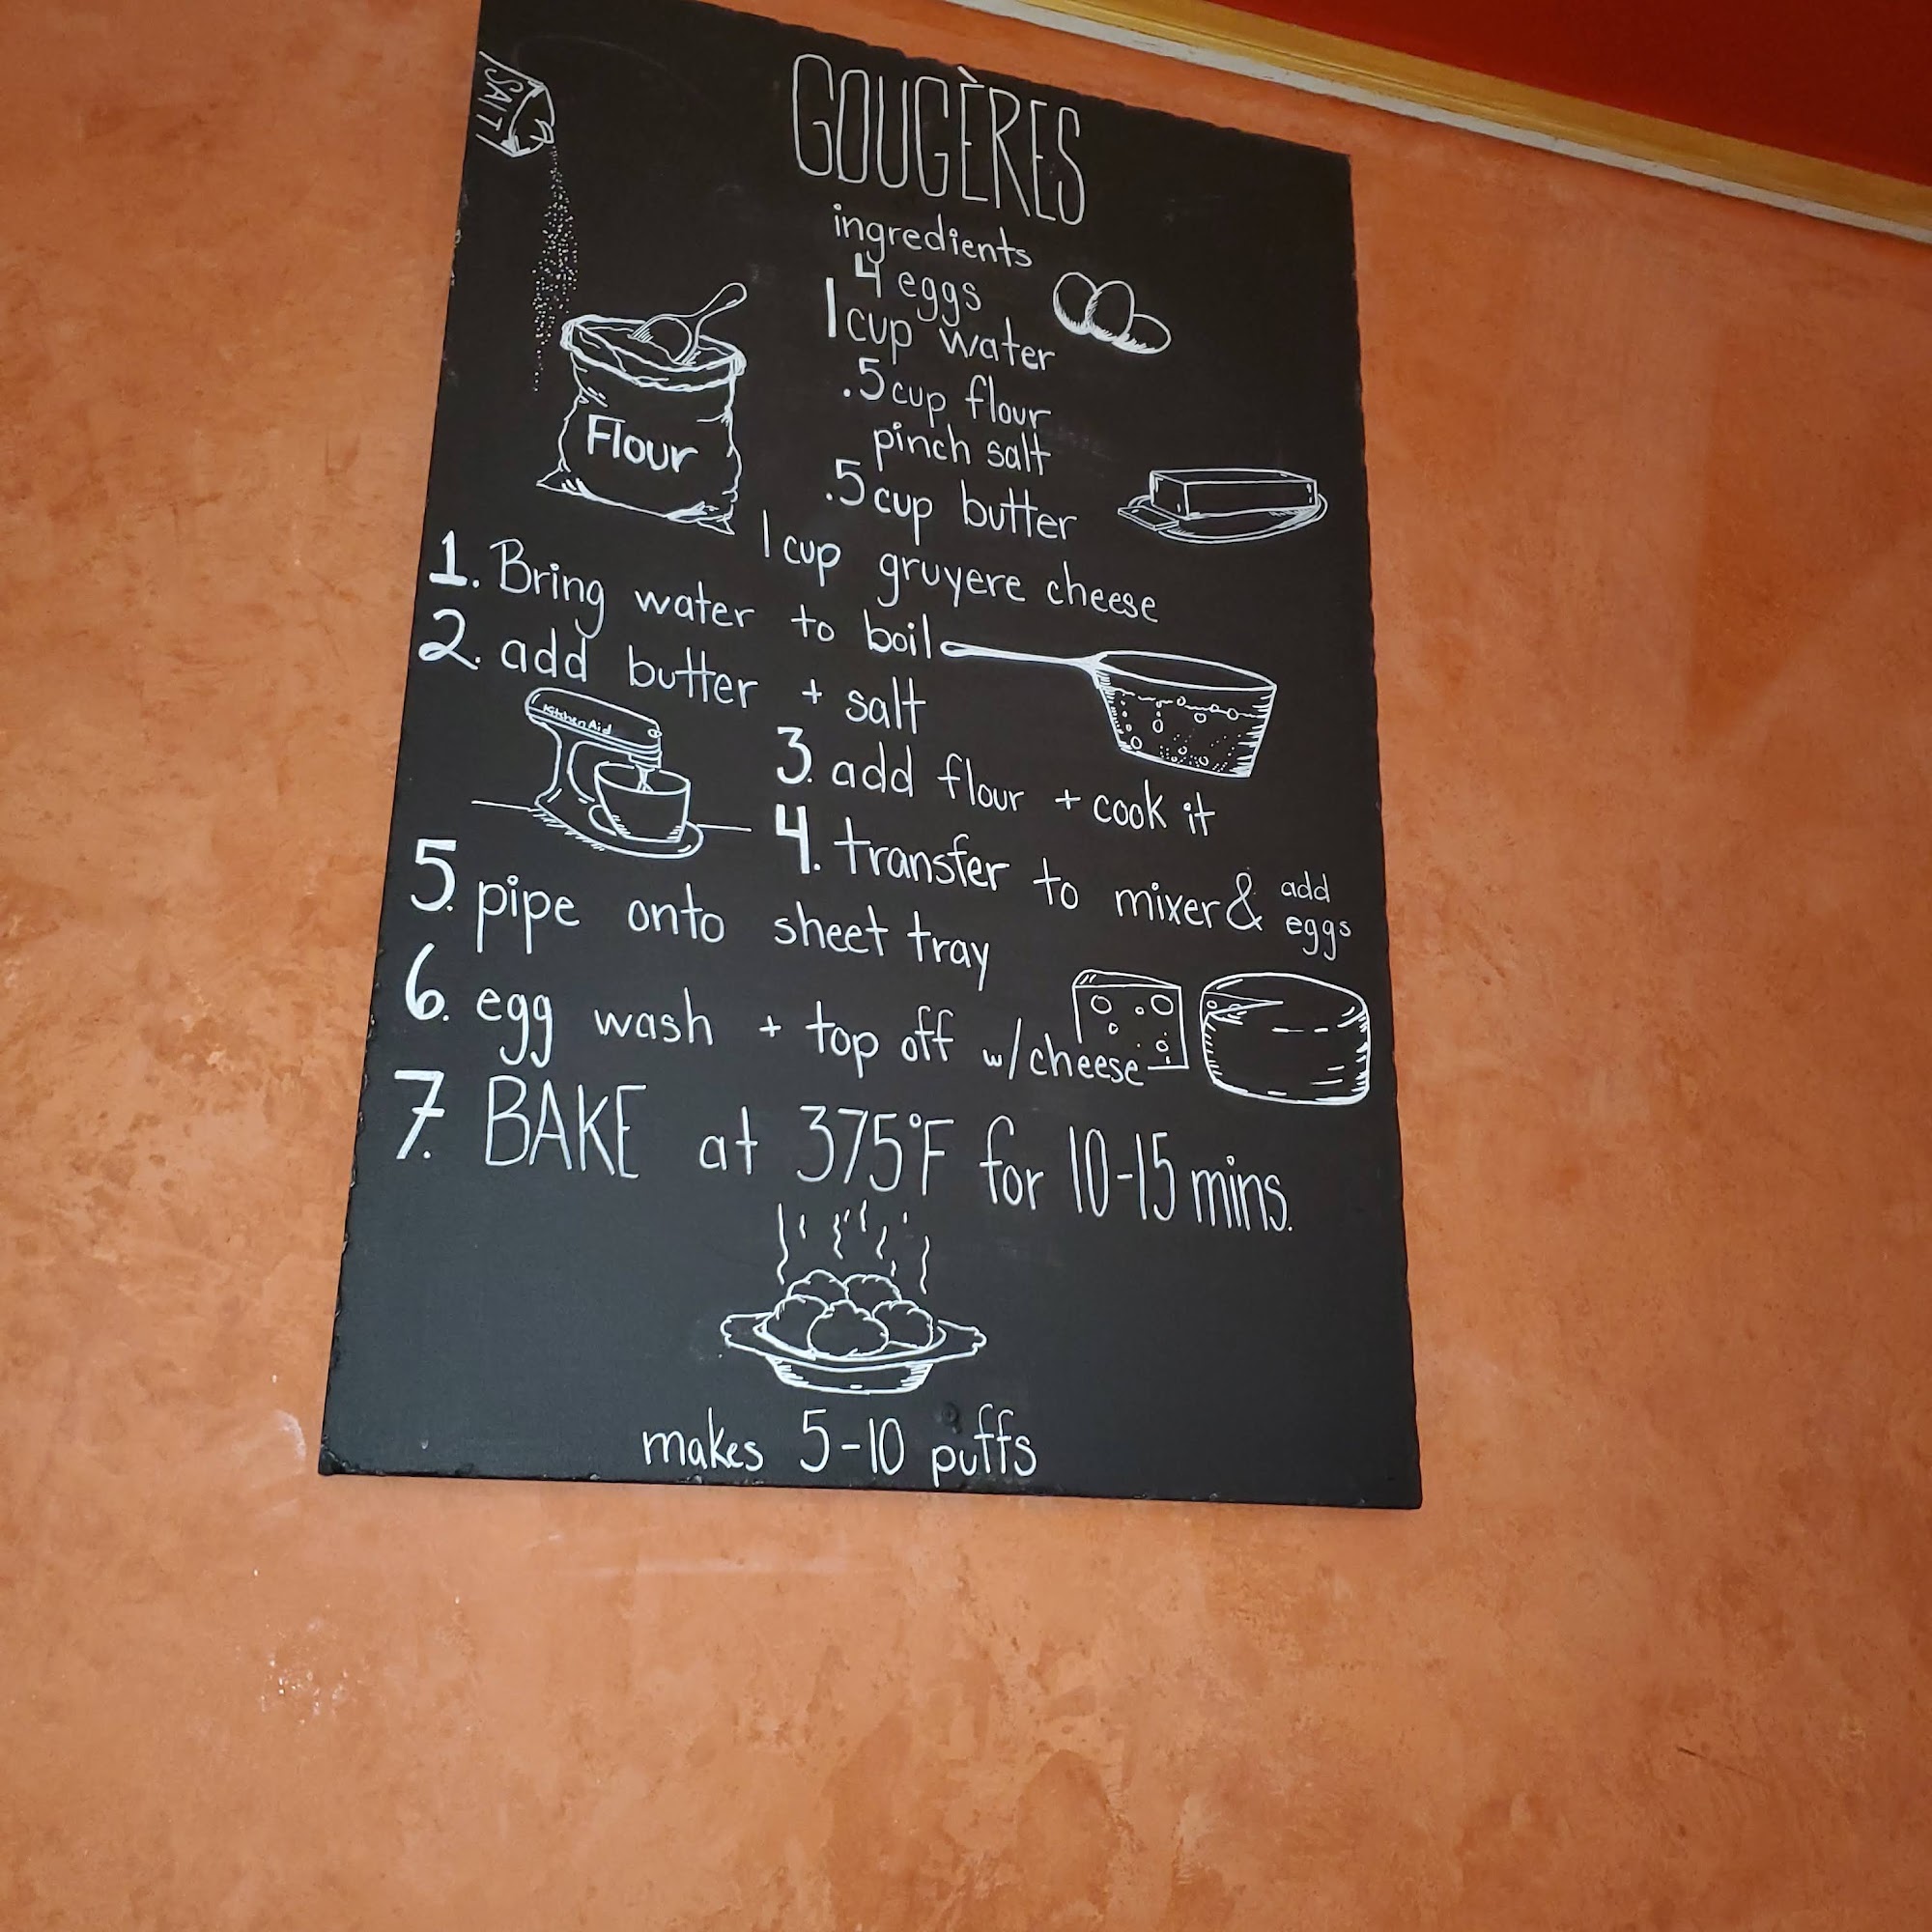 SALT
GOUGÈRES
ingredients
4 eggs
1 cup water
.5 cup flour
pinch salt
.5 cup butter
1 cup gruyere cheese
Flour
1. Bring water to boil
2. add butter + salt
KitchenAid
3. add flour + cook it
4. transfer to mixer & add eggs
5. pipe onto sheet tray
6. egg wash + top off w/cheese
7. BAKE at 375°F for 10-15 mins.
makes 5-10 puffs